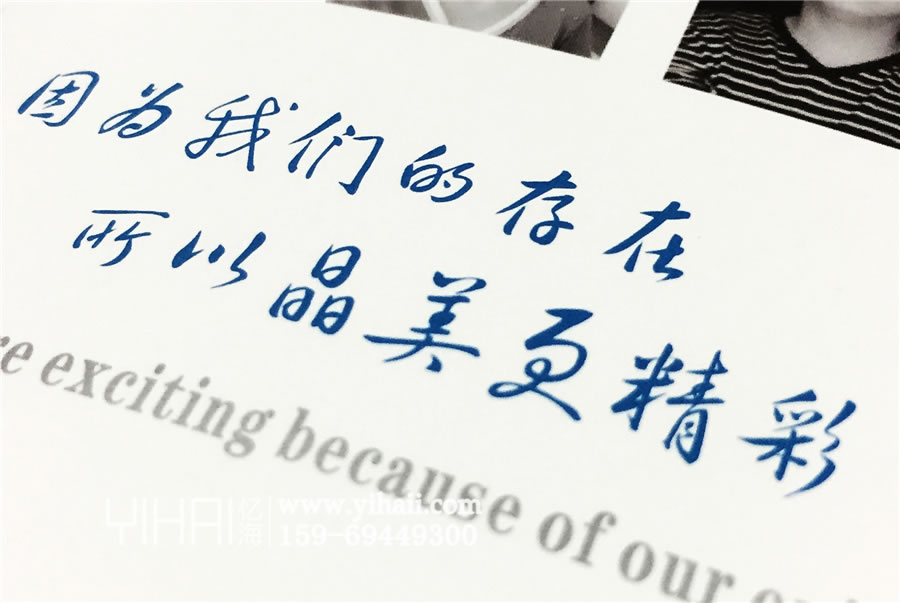 因为我们的存在
所以晶美更精彩
exciting because of our
YIHAI 忆海
www.yihaii.com
159-69449300